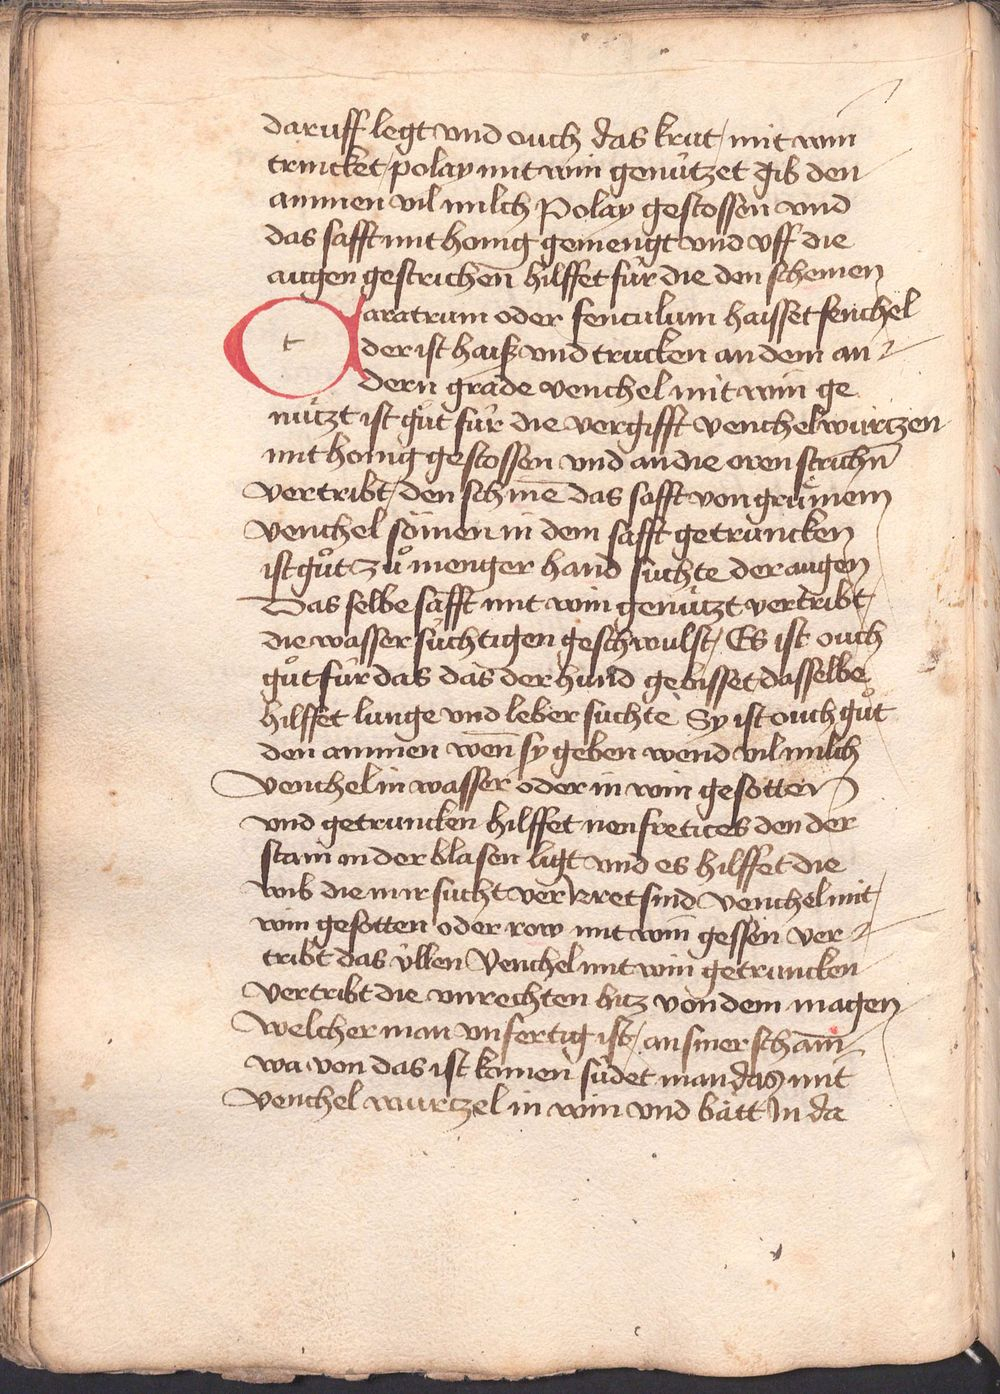 daruff legt vnd ouch das krut / mit win
trincket / polay mit win genützet Gib den
ammen vil milch Polay gestossen vnd
das safft mit honig gemengt vnd vff die
augen gestrichen̄ hilffet für die den schemen
t
aratrum oder feniculum haisset fenchel
der ist haiß vnd trucken an dem an
dern grade venchel mit win ge
nützt ist gůt für die vergifft Venchel wurtzen
mit honig gestossen vnd an die oren strichn̄
vertribt / den schmē das safft von grůnem
venchel sömen in dem safft getruncken
ist gůt zů menger hand suchte der augen
Das selbe safft mit win genützt vertribt
die wasser süchtigen geschwulst / Es ist ouch
gůt für das das der hund gebisset dasselbe
hilffet lunge vnd leber suchte Sy ist ouch gůt
den ammen wen̄ sy geben wend vil milch
Venchel in wasser oder in win gesotten
vnd getruncken hilffet nenfretices den der
stain in der blasen ligt vnd es hilffet die
wib die mir sucht ver sind Venchel mit
win gesotten oder row mit win gessen ver
tribt das üllen Venchel mit win getruncken
vertribt die vnrechten hitz von dem magen
Welcher man vnfertig ist / an siner scham̄
wa von das ist komen südet man das mit
Venchel wurtzel in win vnd bätt In da